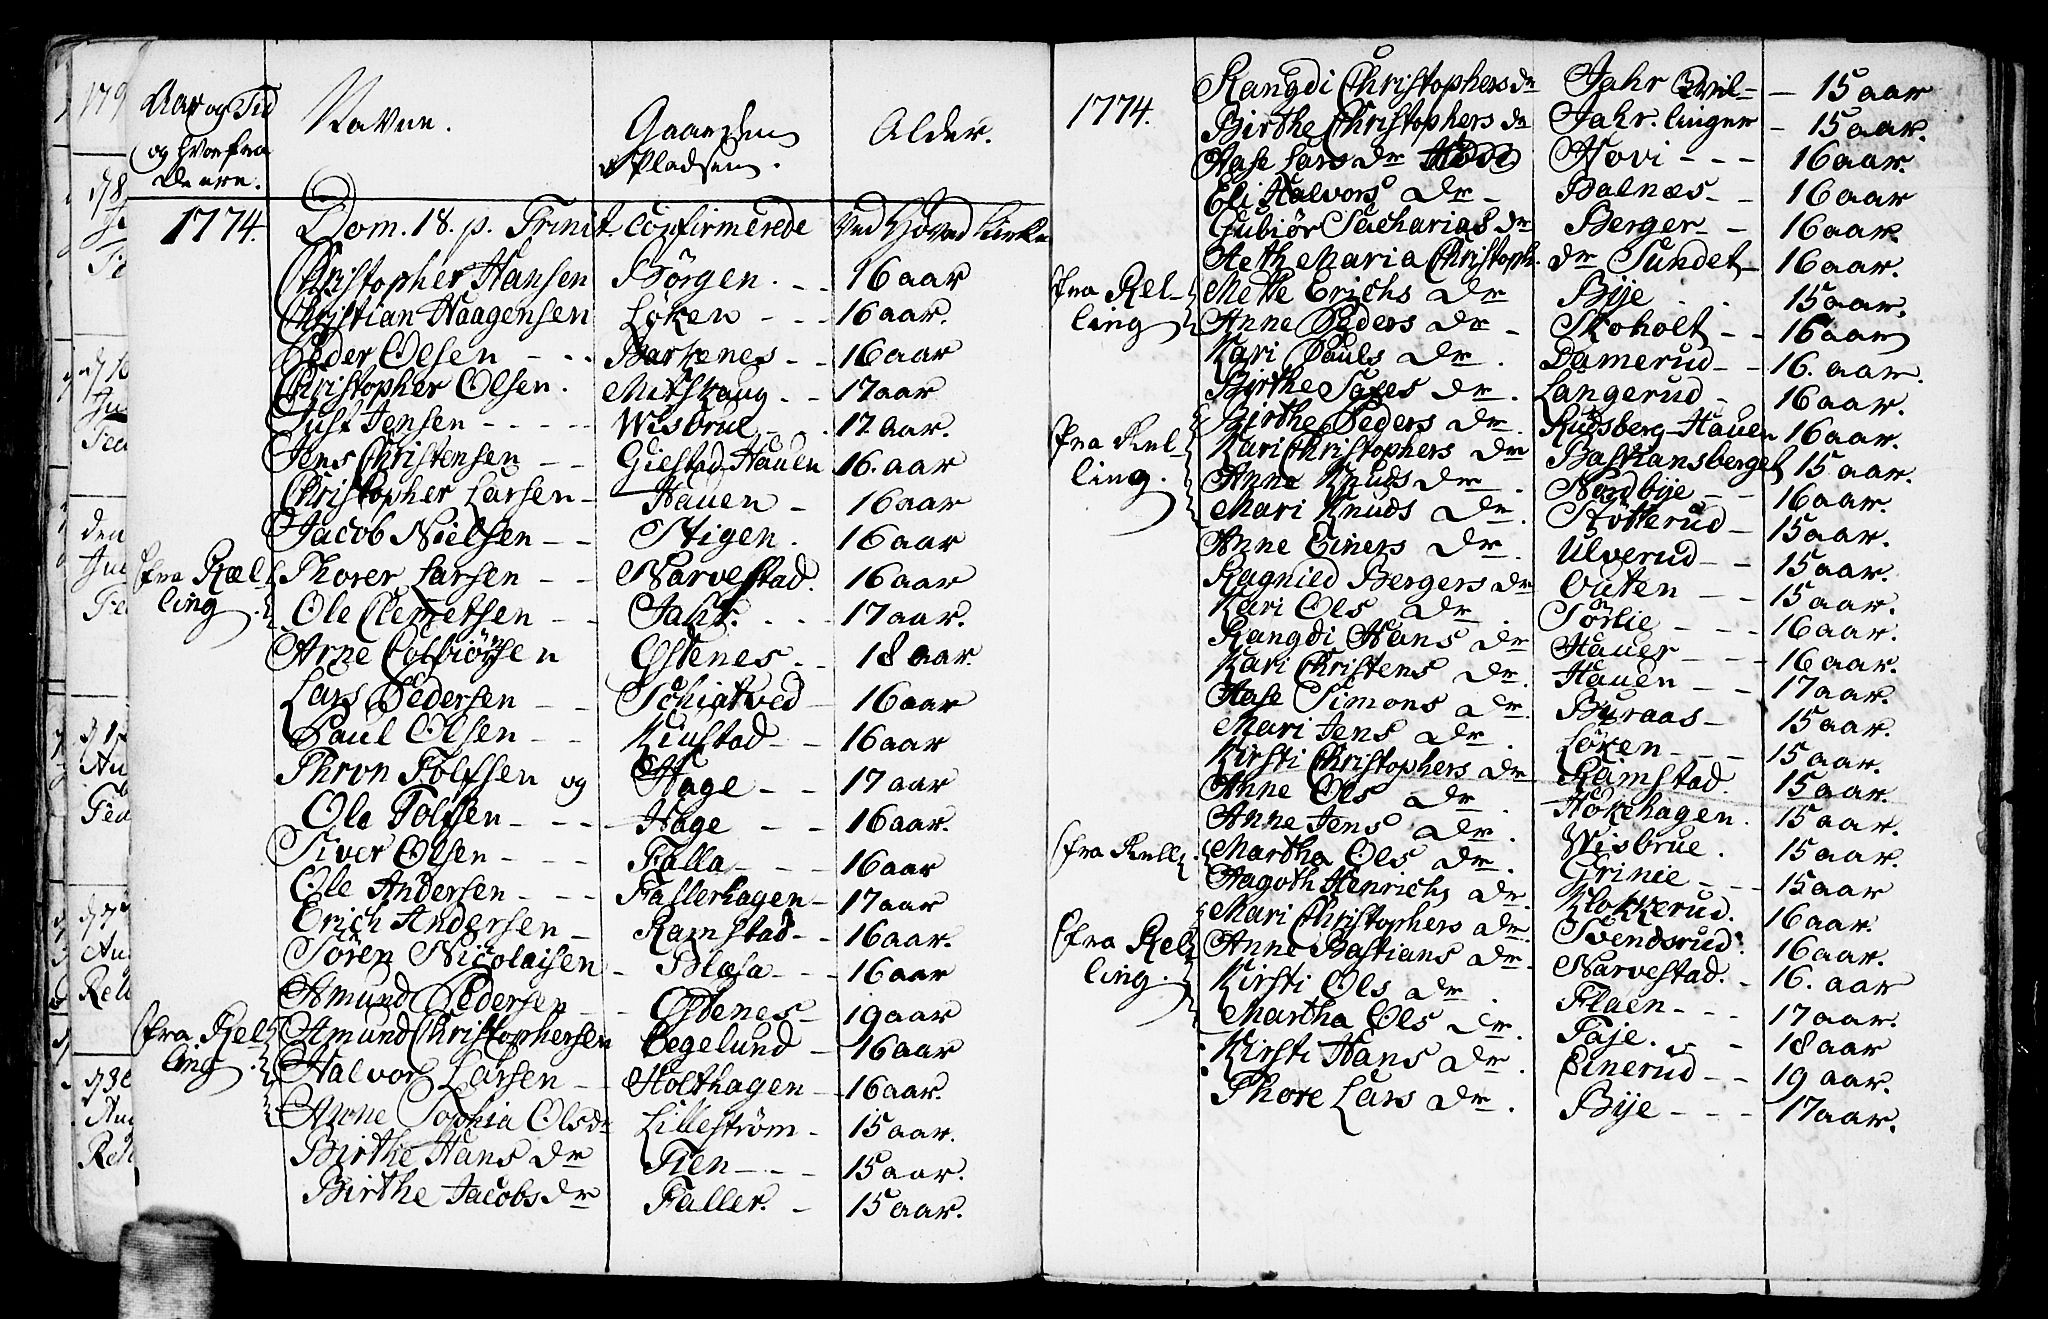 Aar og Tid
og hvorfra
de ere.
Navne.
Gaarden
Pladsen.
Alder.
1774. Dom. 18. p. Trinit. confirmerede ved Hoved Kirke
Christopher Hansen Börgen. - - 16 aar
Christian Haagensen Løken - - - 16 aar.
Peder Olsen - - - Barkenes - - 16 aar
Christopher Olsen. Mitskaug - - 17 aar
Just Jensen - - - - - Wisbrue - - 17. aar.
Jens Christensen - - Gielstad-Hauen 16. aar
Christopher Larsen - Hauen - 16 aar
Jacob Nielsen - - Stigen. 16 aar
fra Ræl-
ling.
Thorer Larsen - - Narvestad. 16 aar
Ole Clemetsen - - Jahr. - - - 17 aar.
Arne Colbiörnsen Ostenes - - 18 aar.
Lars Pedersen - - Schiatved - 16 aar
Paul Olsen - - Kiustad - - 16 aar
Thron Tolfsen og Hage - - 17 aar
Ole Tolfsen - - - - Hage - - 16 aar.
Siver Olsen - - - Falla - - - 16 aar
Ole Andersen - - - Fallerhagen - 17 aar
Erich Andersen - Ramstad - - 16 aar.
Sören Nicolaisen - Blæsa - - - 16 aar
Amund Pedersen - - Ostenes - 19 aar
fra Rel-
ling.
Amund Christophersen Bøgelund - 16 aar
Halvor Larsen - - Holthagen - 16 aar.
Anne Sophia Olsdr Lilleström - 15 aar.
Birthe Hans dr Tien - - - 15 aar.
Birthe Jacobs dr Faller. - 15 aar.
1774.
Rangdi Christophers dr Jahr - - 15 aar
Birthe Christophers dr Jahr. linger - 15 aar.
Aase Lars dr Hovi - - - 16 aar.
Eli Halvors dr - Balnæs - - 16 aar
Gubiör Sacharias dr Berger - - 16 aar.
Aeth Maria Christoph. dr Sundet - 16 aar.
fra Rel-
ling
Mette Erichs dr Bÿe - - 15 aar.
Anne Peders dr - Skoholt - - 16 aar
Kari Pauls dr. Damerud - - 16. aar.
Birthe Saxes dr. Langerud - 16 aar.
fra Rel-
ling.
Birthe Peders dr. Rudsberg-Hauen 16 aar.
Kari Christophers dr Bastiansberget 15 aar.
Anne Knuds dr. Nordbÿe - - 16 aar.
Mari Knuds dr. Støtterud - 15 aar.
Anne Einers dr. Ulverud - - 15 aar.
Ragnild Bergers dr Outen - - 15 aar.
Kari Ols dr. Sørlie - - - 16 aar.
Rangdi Hans dr Hauer - - - 16 aar.
Kari Christens dr. Hauen - - 17 aar.
Aase Simons dr. Buraas - 15 aar.
Mari Jens dr. Løken - - - 15 aar.
Kirsti Christophers dr Ramstad. 15 aar.
Anne Ols dr. Hökehagen. 15 aar.
Anne Jens dr. Wisbrue. 15 aar.
fra Rell.
Martha Ols dr. Grinie - - - 15 aar
Aagoth Henrichs dr. Klokkerud. 16 aar.
Mari Christophers dr. Svendsrud. 16 aar.
fra Rel-
ling.
Anne Bastians dr. Narvestad. - 16. aar
Kirsti Ols dr. Flaen - - - 17 aar.
Martha Ols dr. Faje. - - 18 aar
Kirsti Hans dr. Einerud - - 19 aar.
Thore Lars dr. Bÿe - - - 17 aar.